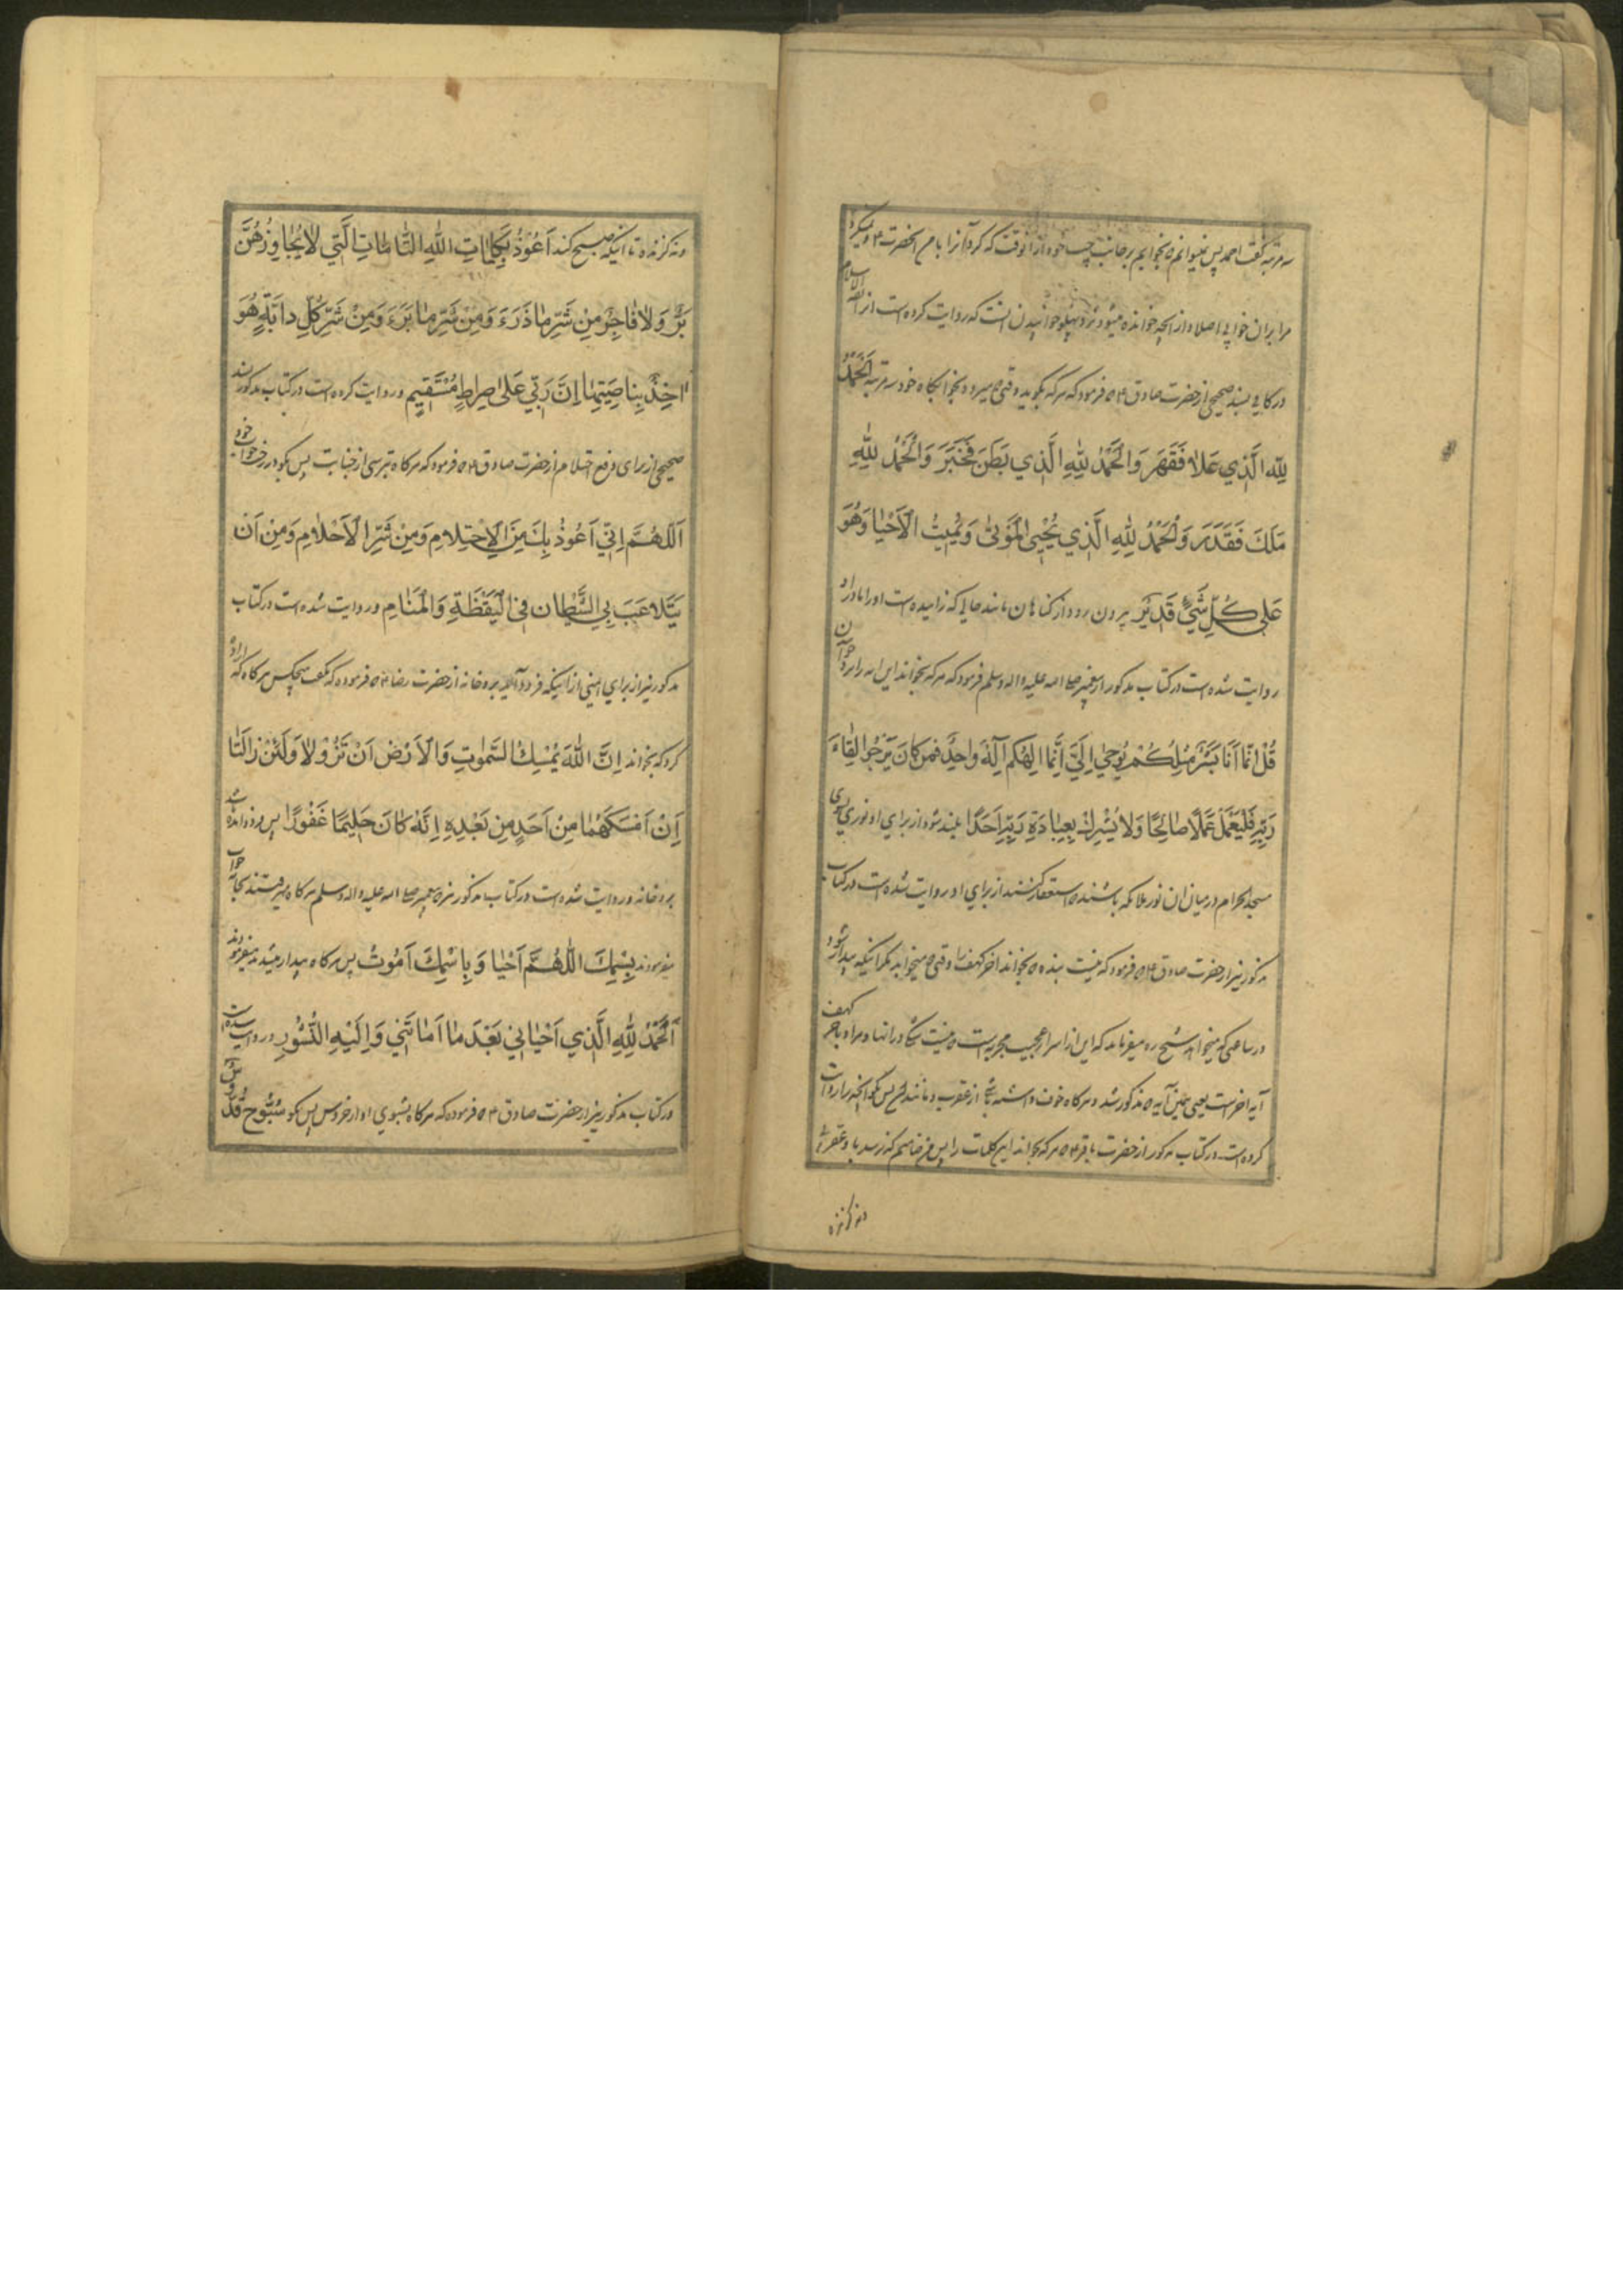 سه مرتبه گفت احمد پس نمیتوانم که بخوابم بر جانب چپ خود از آنوقت که کرد آنرا با من آنحضرت ۴ و نمیگیرد
مرا بر آن خوابی اصلا و از آنچه خوانده میشود نزد پهلو خوابیدن آنست که روایت کرده است از ثقة الاسلام
در کافی بسند صحیح از حضرت صادق ۴ که فرمود که هر که بگوید وقتی که میرود بخوابگاه خود سه مرتبه اَلْحَمْدُ
لِلّٰهِ الَّذِي عَلاٰ فَقَهَرَ وَالْحَمْدُ لِلّٰهِ الَّذِي بَطَنَ فَخَبَرَ وَالْحَمْدُ لِلّٰهِ
مَلَكَ فَقَدَرَ وَالْحَمْدُ لِلّٰهِ الَّذِي يُحْيِي الْمَوْتىٰ وَيُمِيتُ الْاَحْيٰا وَهُوَ
عَلىٰ كُلِّ شَيْءٍ قَدِيْرٌ بیرون رود از گناهان مانند حالی که زاییده است او را مادر او
روایت شده است در کتاب مذکور از پیغمبر صلی الله علیه واله وسلم فرمود که هر که بخواند این ایه را نزد خواب آن
قُلْ اِنَّمٰا اَنَا بَشَرٌ مِثْلُكُمْ يُوحىٰ اِلَيَّ اَنَّمٰا اِلٰهُكُمْ اِلٰهٌ وٰاحِدٌ فَمَنْ كٰانَ يَرْجُوا لِقٰاءَ
رَبِّهِ فَلْيَعْمَلْ عَمَلًا صٰالِحًا وَلاٰ يُشْرِكْ بِعِبٰادَةِ رَبِّهِ اَحَدًا بلند شود از برای او نوری بسوی
مسجد الحرام در میان ان نور ملائکه باشند که استغفار کنند از برای او و روایت شده است در کتاب
مذکور نیز از حضرت صادق ۴ که فرمود که نیست بنده که بخواند اخر کهف را وقتی که میخوابد مگر اینکه بیدار شود
در ساعتی که میخواهد شیخ ره میفرماید که این از اسرار عجیب مجربه است که نیست شک در انها و مراد باخر کهف
آیه اخر است یعنی همین آیه که مذکور شد و هر گاه خوف داشته باشی از عقرب و مانند ان پس بگو آنچه را روایت
کرده است در کتاب مذکور از حضرت باقر ۴ که هر که بخواند این کلمات را پس من ضامنم که نرسد باو عقربی
و نه گزنده
و نه گزنده تا اینکه صبح کند اَعُوْذُ بِكَلِمٰاتِ اللّٰهِ التّٰامّٰاتِ الَّتِي لاٰ يُجٰاوِزُهُنَّ
بَرٌّ وَلاٰ فٰاجِرٌ مِنْ شَرِّ مٰا ذَرَءَ وَمِنْ شَرِّ مٰا بَرَءَ وَمِنْ شَرِّ كُلِّ دٰابَّةٍ هُوَ
اٰخِذٌ بِنٰاصِيَتِهٰا اِنَّ رَبِّي عَلىٰ صِرٰاطٍ مُسْتَقِيْمٍ و روایت کرده است در کتاب مذکور بسند
صحیح از برای دفع احتلام از حضرت صادق ۴ که فرمود که هر گاه بترسی از جنابت پس بگو در رخت خواب خود
اَللّٰهُمَّ اِنِّي اَعُوْذُ بِكَ مِنَ الْاِحْتِلاٰمِ وَمِنْ شَرِّ الْاَحْلاٰمِ وَمِنْ اَنْ
يَتَلاٰعَبَ بِيَ الشَّيْطٰانُ فِي الْيَقْظَةِ وَالْمَنٰامِ و روایت شده است در کتاب
مذکور نیز از برای ایمنی از اینکه فرود آید بر او خانه از حضرت رضا ۴ که فرموده که نگفت هیچکس هر گاه که اراده
کرد که بخوابد اِنَّ اللّٰهَ يُمْسِكُ السَّمٰوٰتِ وَالْاَرْضَ اَنْ تَزُوْلاٰ وَلَئِنْ زٰالَتٰا
اِنْ اَمْسَكَهُمٰا مِنْ اَحَدٍ مِنْ بَعْدِهِ اِنَّهُ كٰانَ حَلِيْمًا غَفُوْرًا پس فرود آمده باشد
بر او خانه و روایت شده است در کتاب مذکور نیز که پیغمبر صلی الله علیه واله وسلم هر گاه میرفتند بجامه خواب
میفرمودند بِسْمِكَ اللّٰهُمَّ اَحْيٰا وَبِاسْمِكَ اَمُوْتُ پس هر گاه بیدار میشدند میفرمودند
اَلْحَمْدُ لِلّٰهِ الَّذِي اَحْيٰانِي بَعْدَ مٰا اَمٰاتَنِي وَاِلَيْهِ النُّشُوْرُ و روایت شده است
در کتاب مذکور نیز از حضرت صادق ۴ که فرموده که هر گاه بشنوی اواز خروس پس بگو سُبُّوحٌ قُدُّوسٌ